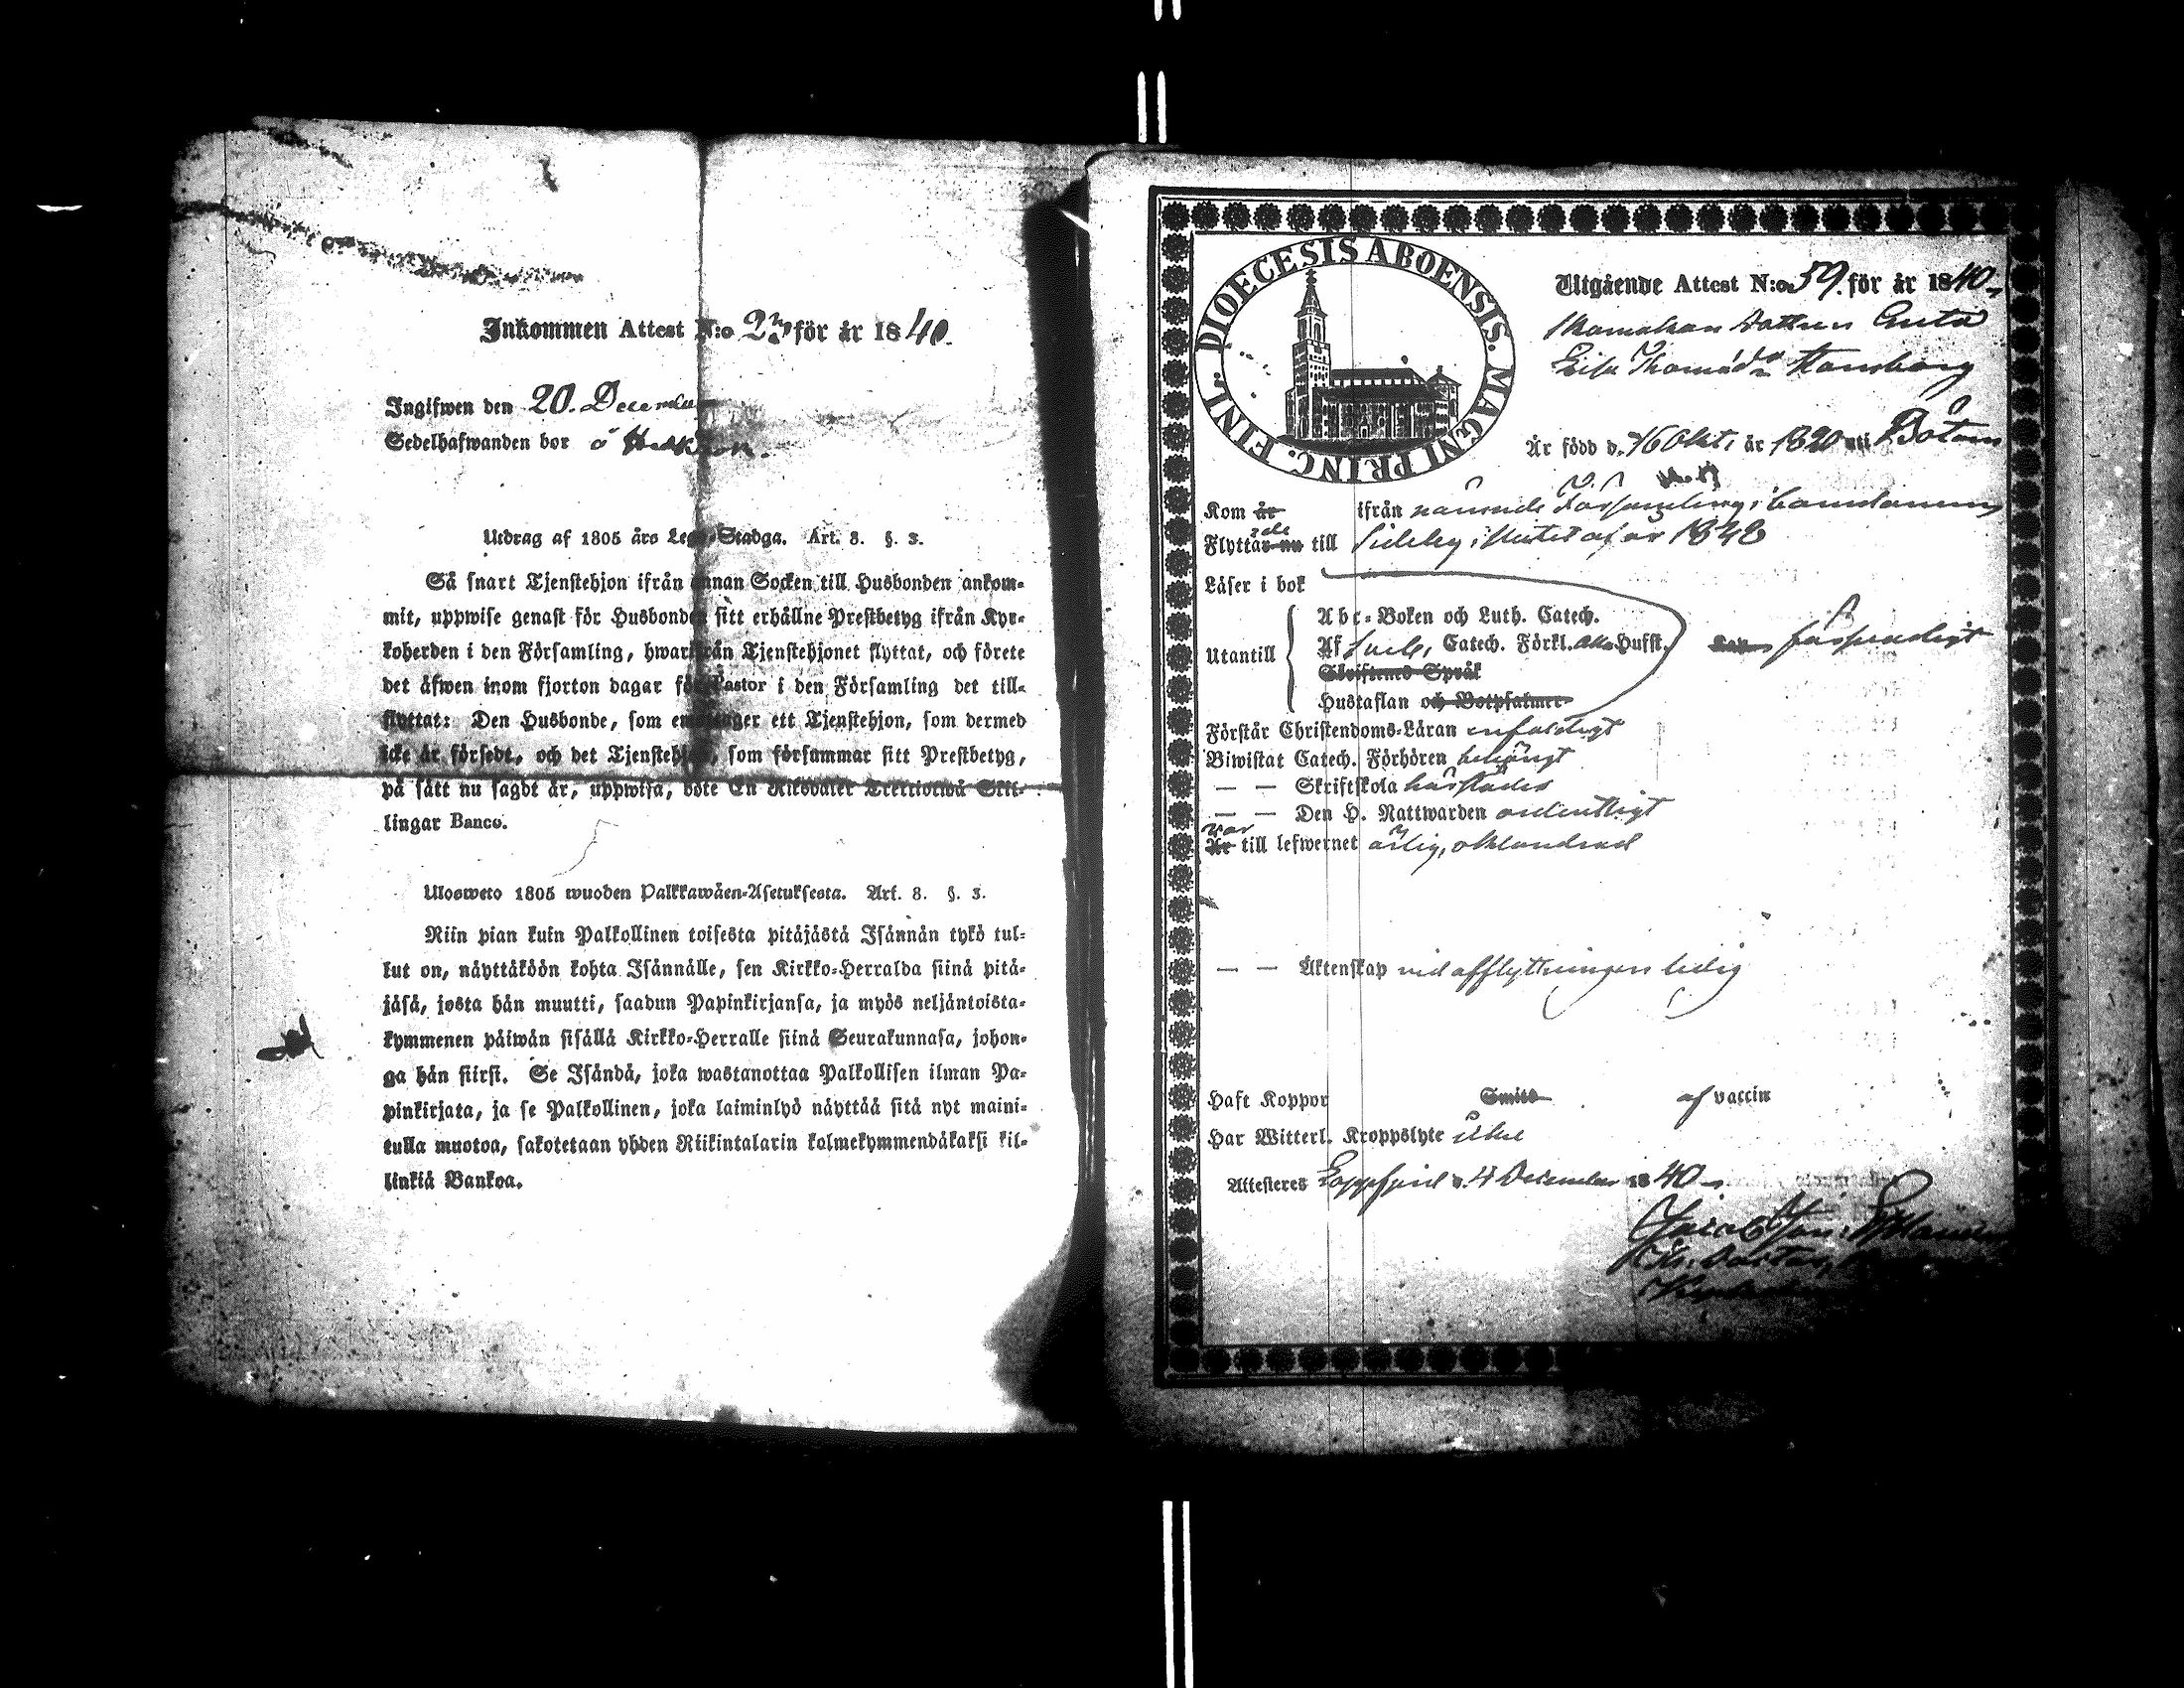 Inkommen Attest N:o 23 för år 1840.
Ingifwen den 20. December
Sedelhafwanden bor å
Utdrag af 1805 års Lego-Stadga. Art. 8. §. 3.
Så snart Tjenstehjon ifrån annan Socken till Husbonden ankom-
mit, uppwise genast för Husbonden sitt erhållne Prestbetyg ifrån Kyr-
koherden i den Församling, hwarifrån Tjenstehjonet flyttat, och förete
det äfwen inom fjorton dagar för Pastor i den Församling det till-
flyttat: Den Husbonde, som emottager ett Tjenstehjon, som dermed
icke är försedt, och det Tjenstehjon, som försummar sitt Prestbetyg,
på sätt nu sagdt är, uppwisa, böte En Riksdaler Trettiotwå Skil-
lingar Banco.
Ulosweto 1805 wuoden Palkkawäen-Asetuksesta. Art. 8. §. 3.
Niin pian kuin Palkollinen toisesta pitäjästä Isännän tykö tul-
lut on, näyttäköön kohta Isännälle, sen Kirkko-Herralda siinä pitä-
jäsä, josta hän muutti, saadun Papinkirjansa, ja myös neljäntoista-
kymmenen päiwän sisällä Kirkko-Herralle siinä Seurakunnasa, johon-
ga hän siirsi. Se Isändä, joka wastanottaa Palkollisen ilman Pa-
pinkirjata, ja se Palkollinen, joka laiminlyö näyttää sitä nyt maini-
tulla muotoa, sakotetaan yhden Riikintalarin kolmekymmendäkaksi kil-
linkiä Bankoa.
DIOECESIS ABOENSIS. MAGNI PRINC. FINL.
Utgående Attest N:o 59. för år 1840.
dottren Greta
Lisa Thomæ dr
Är född d. 16 Okt. år 1820 uti Botom
Kom år ifrån Församling,
Flyttar nu till Sideby i af år 1838
Läser i bok
Utantill
Abc-Boken och Luth. Catech.
Af Sveb. Catech. Förkl. Hufst.
Skriftenes Språk
Hustaflan och Botpsalmer
försvarligt
Förstår Christendoms-Läran enfaldigt
Biwistat Catech. Förhören behörigt
— — Skriftskola härstädes
— — Den H. Nattwarden ordentligt
var
Är till lefwernet ärlig, oklandrad
— — Äktenskap vid afflyttningen ledig
Haft Koppor Smitt af vaccin
Har Witterl. Kroppslyte
Attesteres Lappfjerd d. 4 December 1840